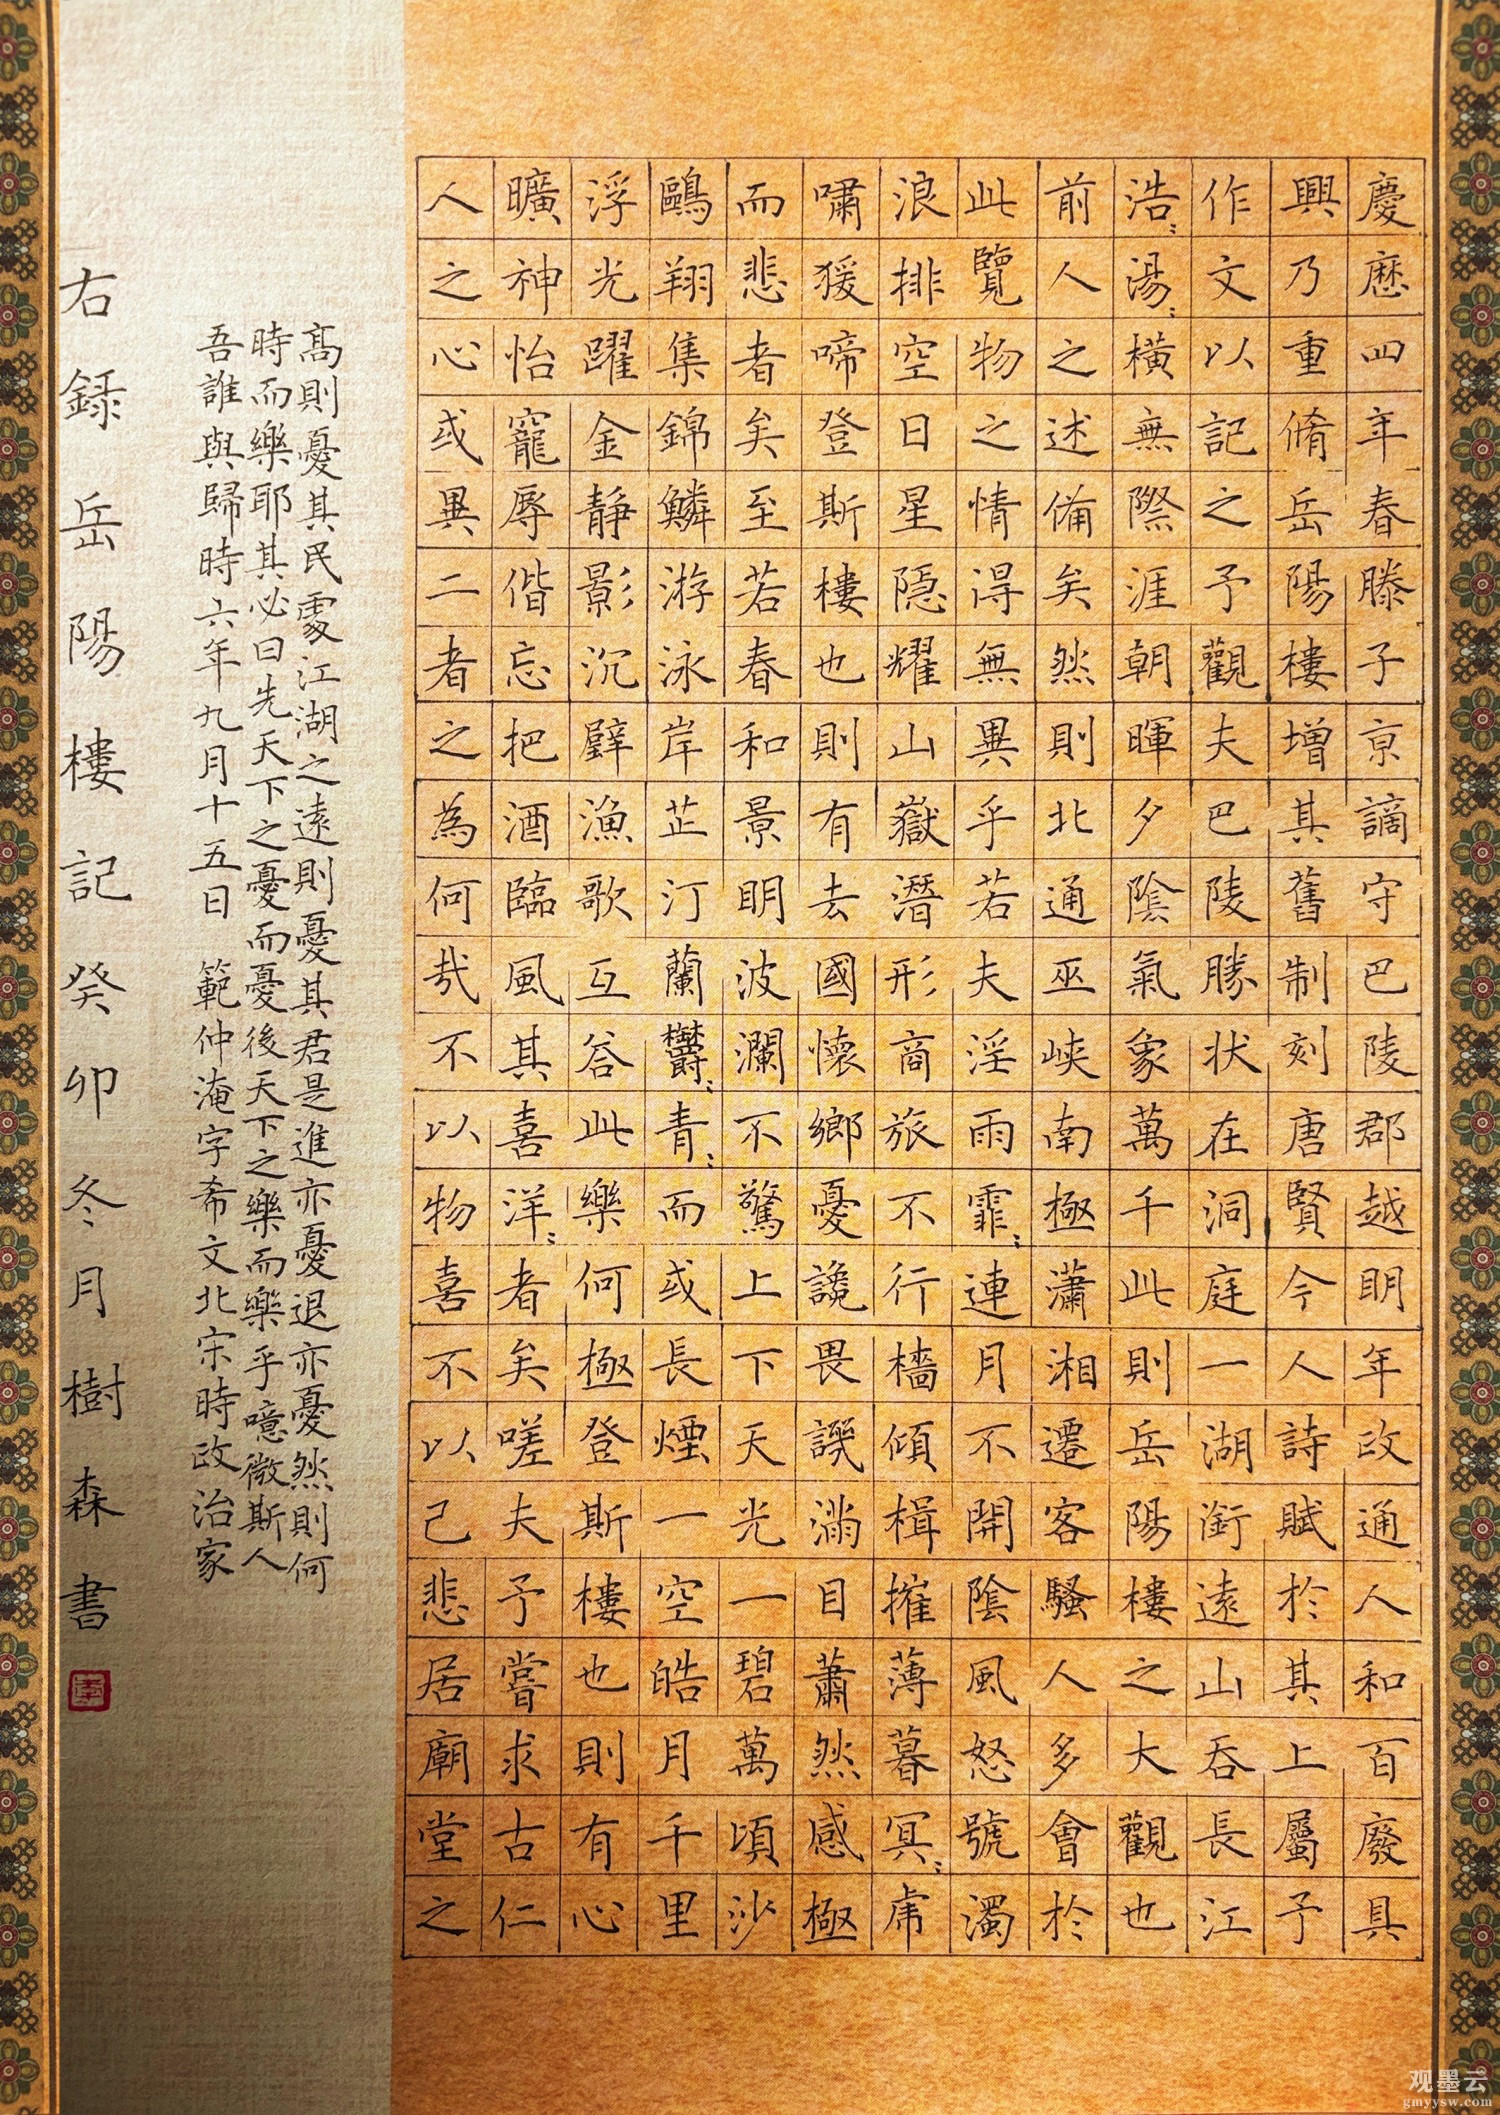 慶歷四年春滕子京謫守巴陵郡越明年政通人和百廢具
興乃重脩岳陽樓增其舊制刻唐賢今人詩賦於其上屬予
作文以記之予觀夫巴陵勝狀在洞庭一湖銜遠山吞長江
浩〻湯〻橫無際涯朝暉夕陰氣象萬千此則岳陽樓之大觀也
前人之述備矣然則北通巫峽南極瀟湘遷客騷人多會於
此覽物之情得無異乎若夫淫雨霏〻連月不開陰風怒號濁
浪排空日星隱耀山嶽潛形商旅不行檣傾楫摧薄暮冥〻虎
嘯猨啼登斯樓也則有去國懷鄉憂讒畏譏滿目蕭然感極
而悲者矣至若春和景明波瀾不驚上下天光一碧萬頃沙
鷗翔集錦鱗游泳岸芷汀蘭鬱〻青〻而或長煙一空皓月千里
浮光躍金靜影沉璧漁歌互答此樂何極登斯樓也則有心
曠神怡寵辱偕忘把酒臨風其喜洋〻者矣嗟夫予嘗求古仁
人之心或異二者之為何哉不以物喜不以己悲居廟堂之
高則憂其民處江湖之遠則憂其君是進亦憂退亦憂然則何
時而樂耶其必曰先天下之憂而憂後天下之樂而樂乎噫微斯人
吾誰與歸時六年九月十五日 範仲淹字希文北宋時政治家
右錄岳陽樓記癸卯冬月樹森書
观墨云
gmyysw.com